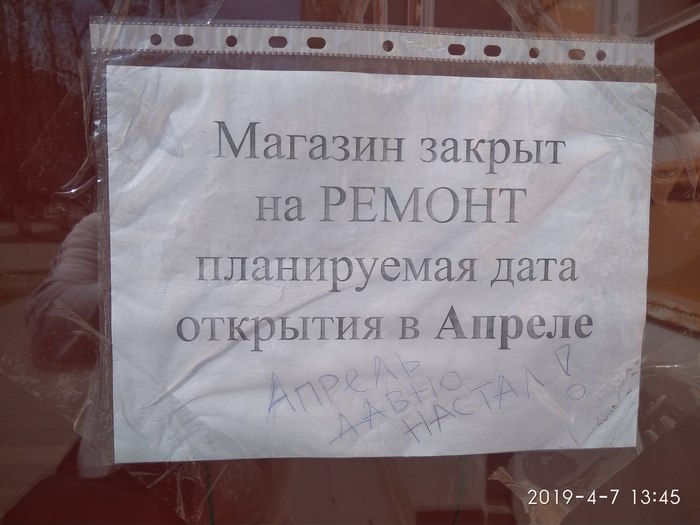 Магазин закрыт
на РЕМОНТ
планируемая дата
открытия в Апреле
АПРЕЛЬ
ДАВНО
НАСТАЛ!
2019-4-7 13:45